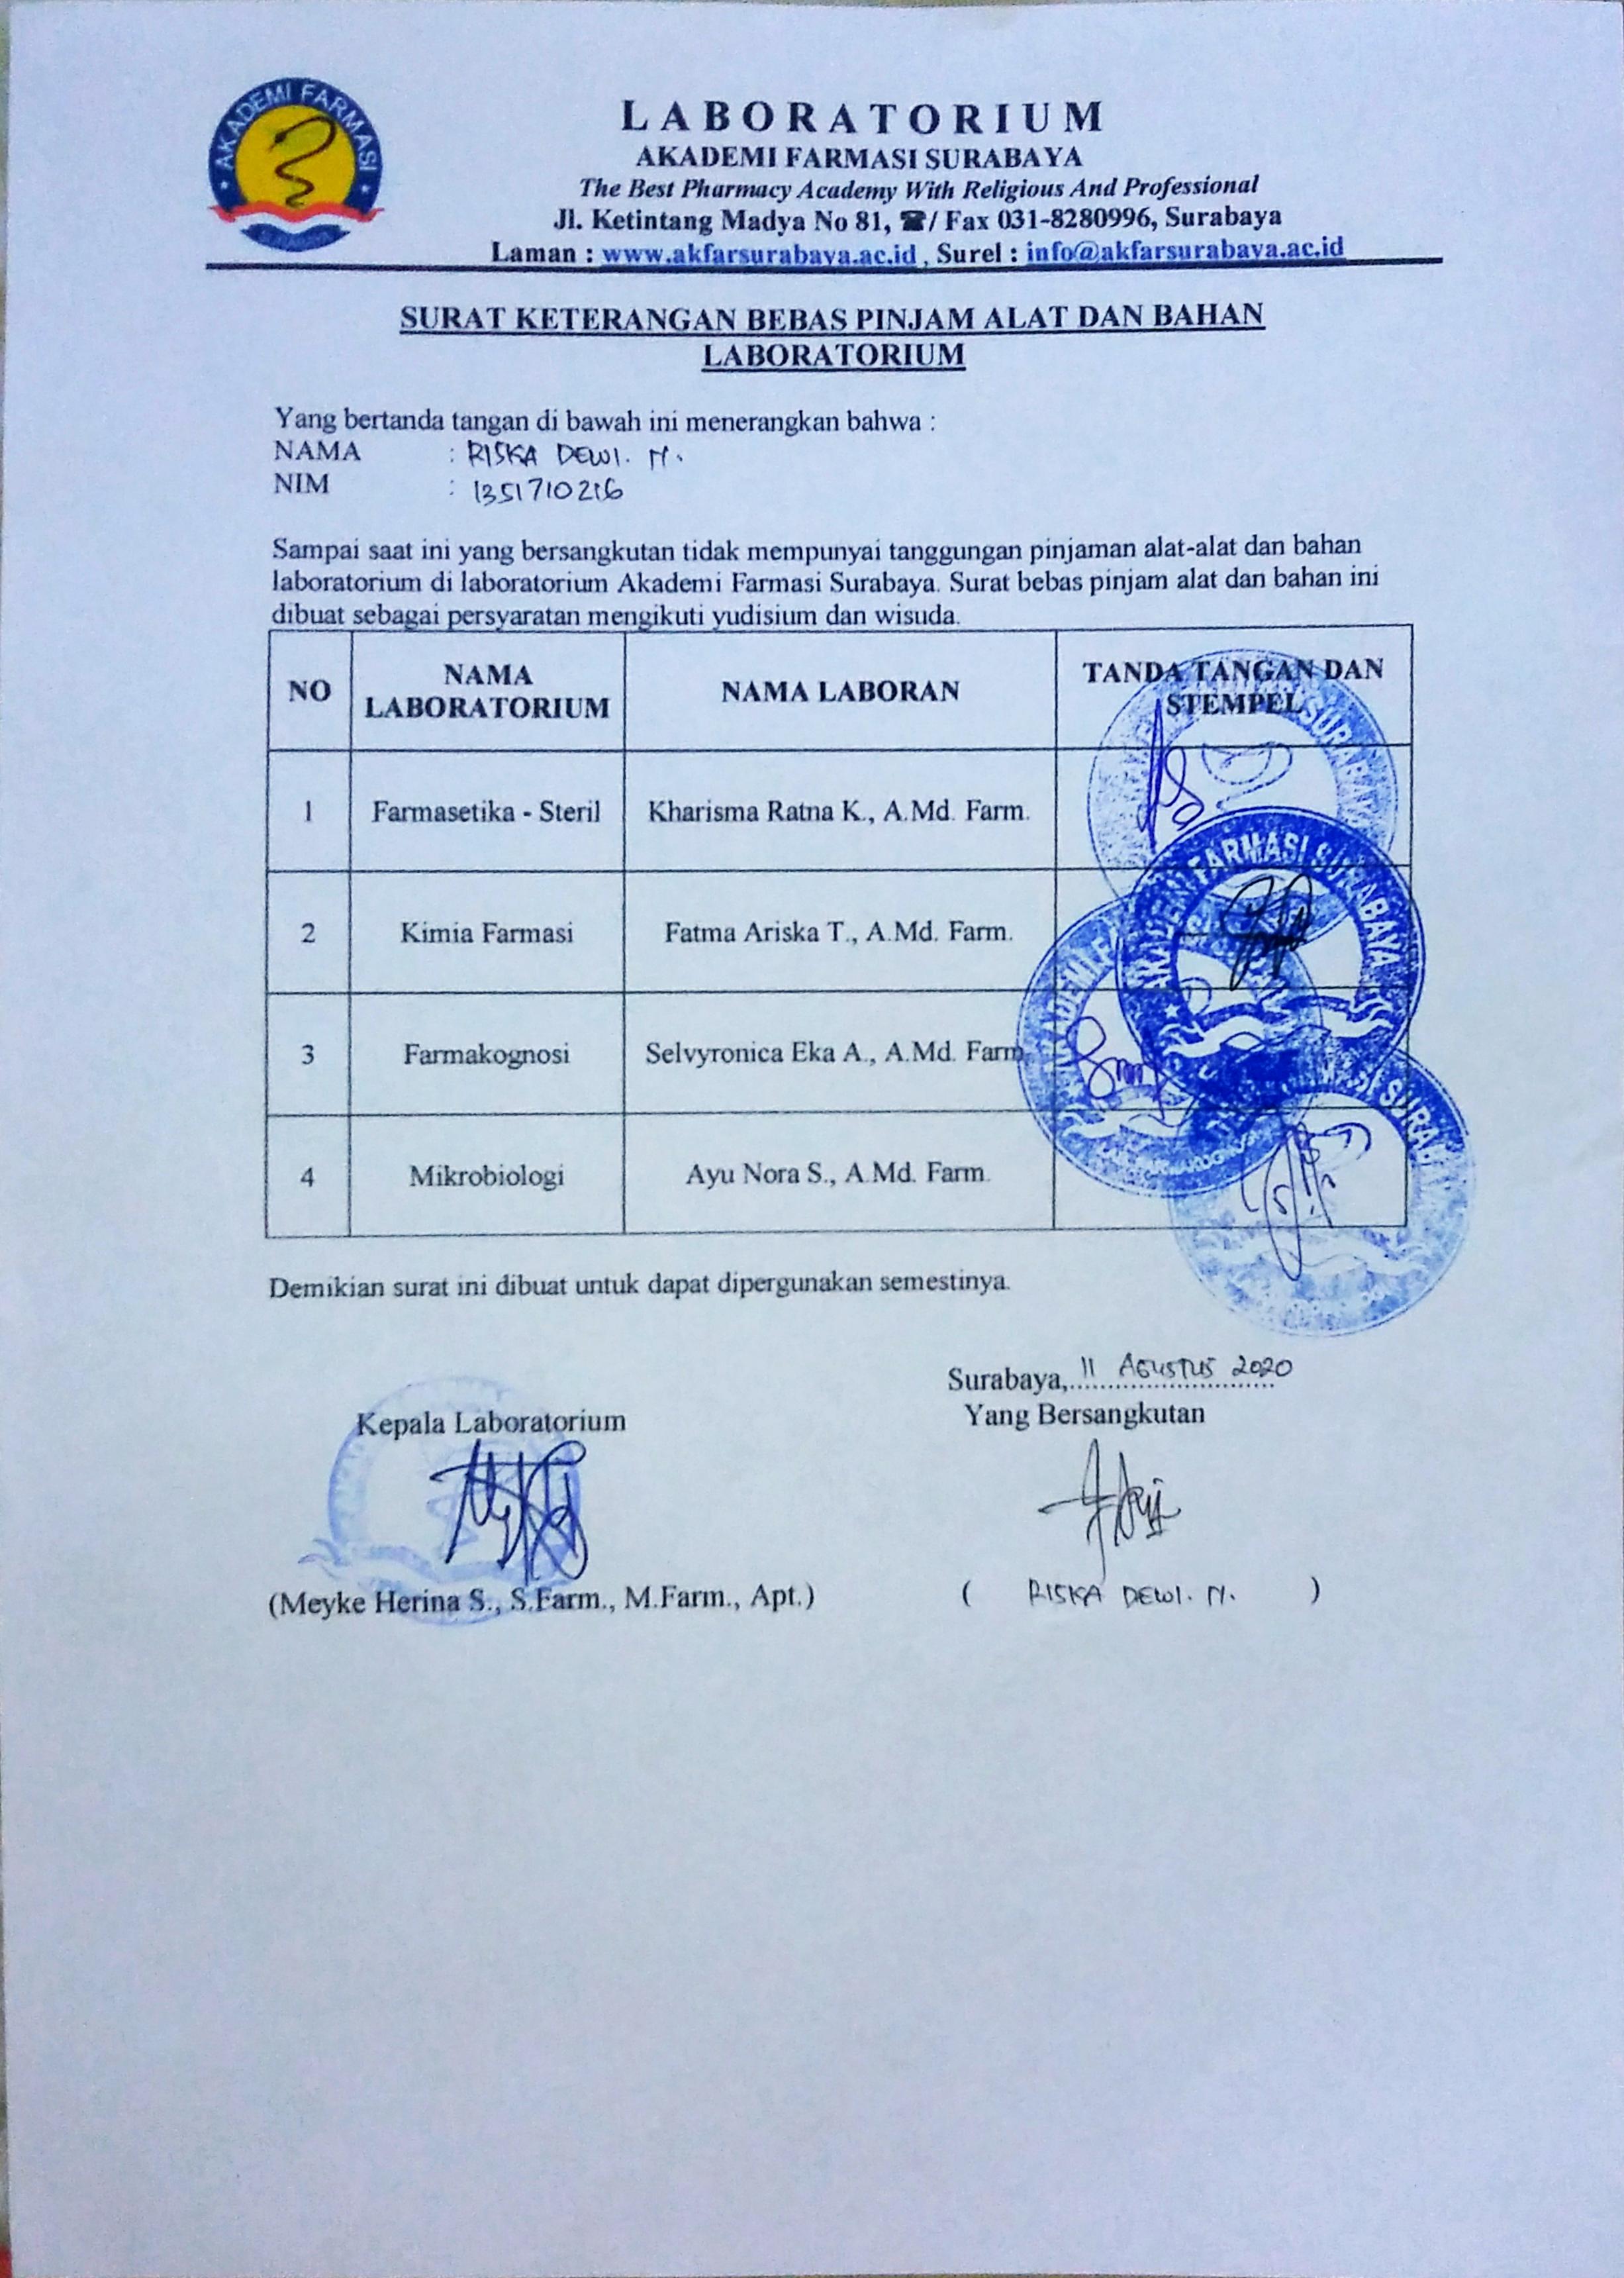 AKADEMI FARMASI
SURABAYA
LABORATORIUM
AKADEMI FARMASI SURABAYA
The Best Pharmacy Academy With Religious And Professional
Jl. Ketintang Madya No 81, ☎/ Fax 031-8280996, Surabaya
Laman : www.akfarsurabaya.ac.id , Surel : info@akfarsurabaya.ac.id
SURAT KETERANGAN BEBAS PINJAM ALAT DAN BAHAN
LABORATORIUM
Yang bertanda tangan di bawah ini menerangkan bahwa :
NAMA : RISKA DEWI. M.
NIM : 1351710216
Sampai saat ini yang bersangkutan tidak mempunyai tanggungan pinjaman alat-alat dan bahan
laboratorium di laboratorium Akademi Farmasi Surabaya. Surat bebas pinjam alat dan bahan ini
dibuat sebagai persyaratan mengikuti yudisium dan wisuda.
NO NAMA LABORATORIUM NAMA LABORAN TANDA TANGAN DAN STEMPEL
1 Farmasetika - Steril Kharisma Ratna K., A.Md. Farm.
2 Kimia Farmasi Fatma Ariska T., A.Md. Farm.
AKADEMI FARMASI SURABAYA
3 Farmakognosi Selvyronica Eka A., A.Md. Farm.
4 Mikrobiologi Ayu Nora S., A.Md. Farm.
Demikian surat ini dibuat untuk dapat dipergunakan semestinya.
Surabaya, 11 AGUSTUS 2020
Kepala Laboratorium Yang Bersangkutan
(Meyke Herina S., S.Farm., M.Farm., Apt.) ( RISKA DEWI. M. )